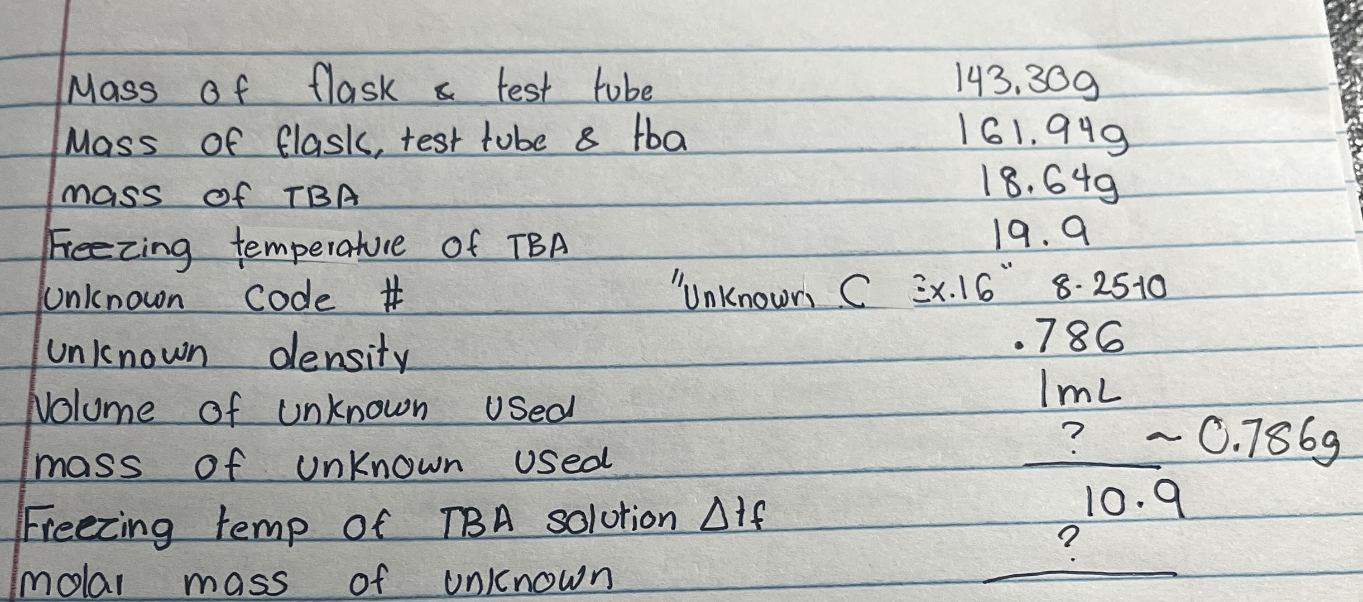 Mass of flask & test tube 143.30g
Mass of flask, test tube & tba 161.94g
mass of TBA 18.64g
Freezing temperature of TBA 19.9
Unknown Code # "Unknown C Ex.16" 8-25-10
unknown density .786
Volume of unknown used 1mL
mass of unknown used ? ~ 0.786g
Freezing temp of TBA solution Δtf 10.9
molar mass of unknown ?